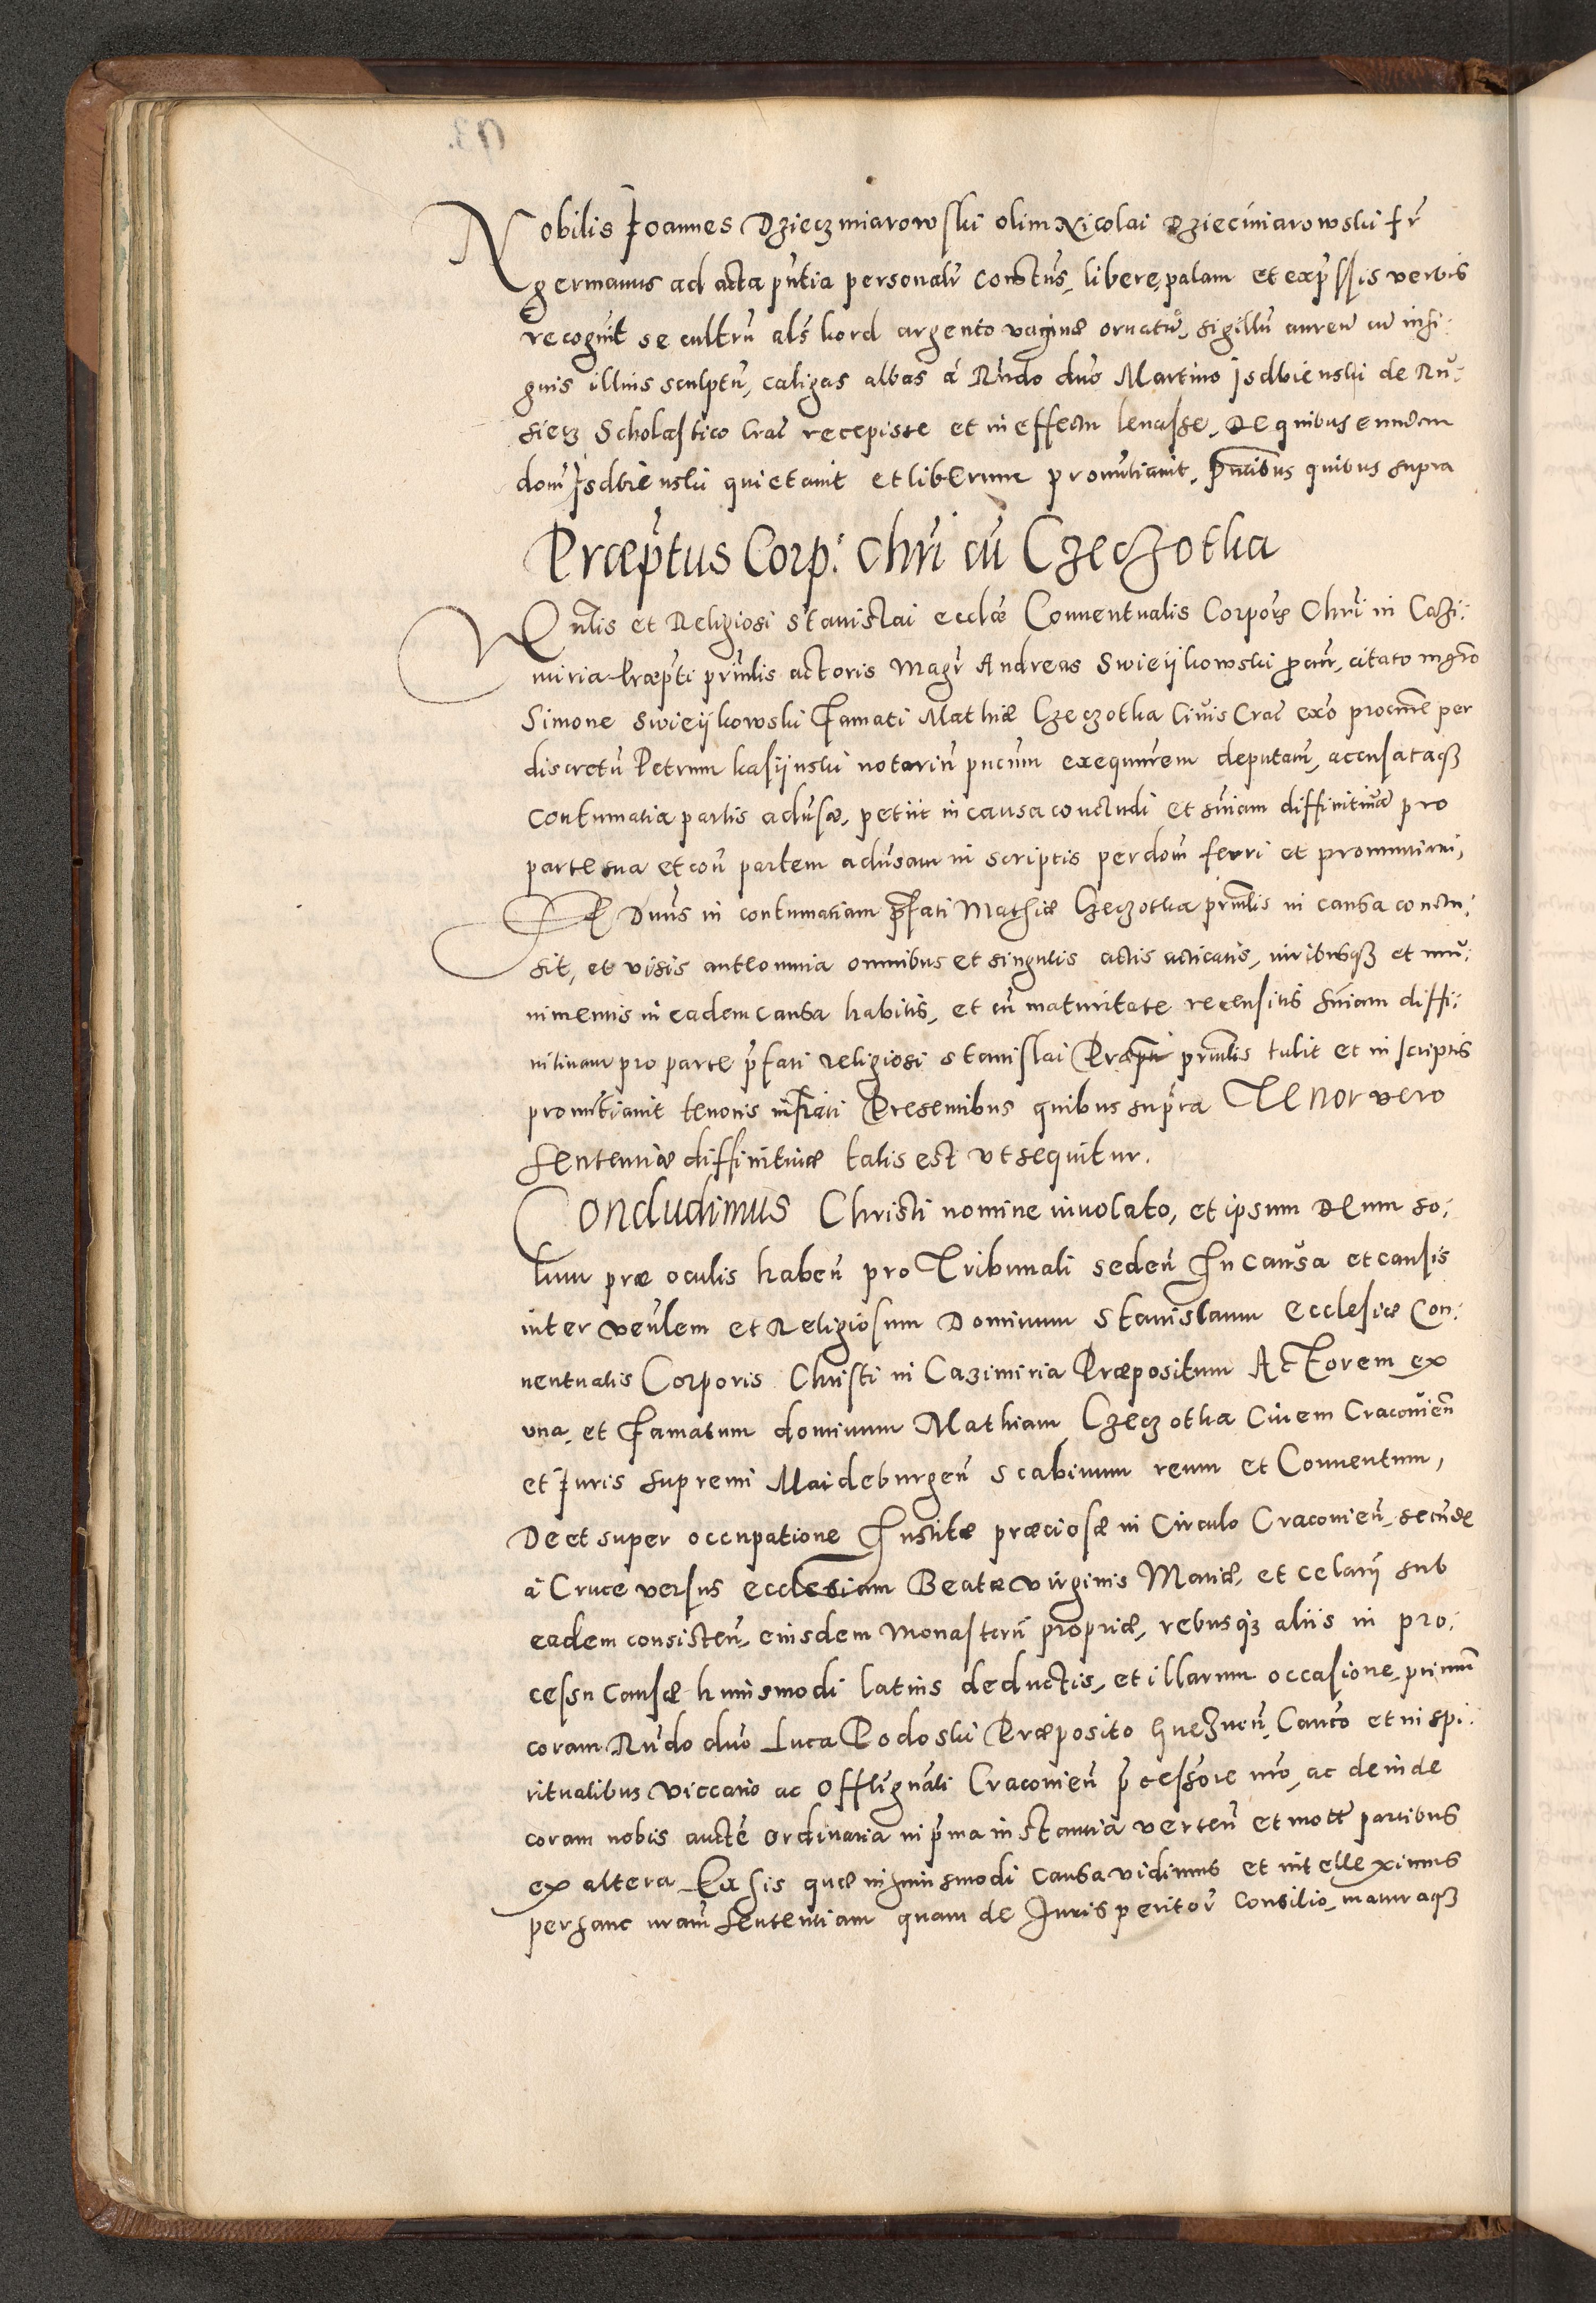 93.
Nobilis Joannes Dzieczmiarowski olim Nicolai Dziecmiarowski fr̄
germanus ad acta pn̄tia personalr̄ constūs, libere, palam et exp̄ssis verbis
recognit se cultrū als̄ kord argento vaginæ ornatū, sigillū aureū cū insi:
gnis illius sculptū, caligas albas á Rn̄do dn̄o Martino Jsdbienski de Ru:
siecz Scholastico Crac̄ recepisse et in effectu levasse, De quibus eundem
dom̄ Jsdbienski quietavit et liberum pronūtiavit, pn̄tibus quibus supra
Præp̄tus Corp: Chrī cū Czeczotka
Vn̄lis et Religiosi Stanislai ecclǣ Conventualis Corporis Chrī in Cazi:
miria Præp̄ti prin̄lis actoris Magr̄ Andreas Swieijkowski procur̄, citato mgr̄o
Simone Swieijkowski Famati Mathiæ Czeczotka Civis Crac̄ exō procur̄e per
discretū Petrum Kasijnski notariū pucūm exequūrem deputatū, accusataqȝ
contumatia partis advn̄sæ, petiit in causa concludi et sn̄iam diffinitivā pro
parte sua et con̄ partem advn̄sam in scriptis per dom̄ ferri et pronuntiari,
Et Dnūs in contumatiam p̄fati Mathiæ Czeczotka prin̄lis in causa conclu:
sit, et visis ante omnia omnibus et singulis actis acticatis, iuribusqȝ et mu:
nimentis in eadem causa habitis, et cū maturitate recensitis sn̄iam diffi:
nitivam pro parte p̄fati religiosi Stanislai Præp̄ti prin̄lis tulit et in scriptis
pronūtiavit tenoris infrāti Presentibus quibus supra Tenor vero
sententiæ diffinitivæ talis est vt sequitur.
Concludimus Christi nomine invocato, et ipsum Deum so:
lum præ oculis haben̄ pro Tribunali seden̄ In causa et causis
inter ven̄lem et Religiosum Dominum Stanislaum Ecclesiæ Con:
ventualis Corporis Christi in Cazimiria Præpositum Actorem ex
vna, et Famatum dominum Mathiam Czeczotka Civem Cracovien̄
et Juris supremi Maideburgen̄ Scabinum reum et Conventum,
De et super occupatione Institæ præciosæ in Circulo Cracovien̄, secundæ
á Cruce versus ecclesiam Beatæ virginis Mariæ, et celarii sub
eadem consisten̄, eiusdem Monasterii propriæ, rebusqȝ aliis in pro:
cessu causæ huiusmodi latius deductis, et illarum occasione, primū
coram Rn̄do dn̄o Luca Podoski Præposito Gneznen̄, Canco et in spi:
ritualibus Viccario ac Offli gn̄ali Cracovien̄ p̄cessore nr̄o, ac deinde
coram nobis aucte ordinaria in pr̄ma instantia verten̄ et mott̄ partibus
ex altera Ex his quæ in huiusmodi causa vidimus et intelleximus
per hanc nr̄am sententiam quam de Juris peritor̄ consilio, maturaqȝ